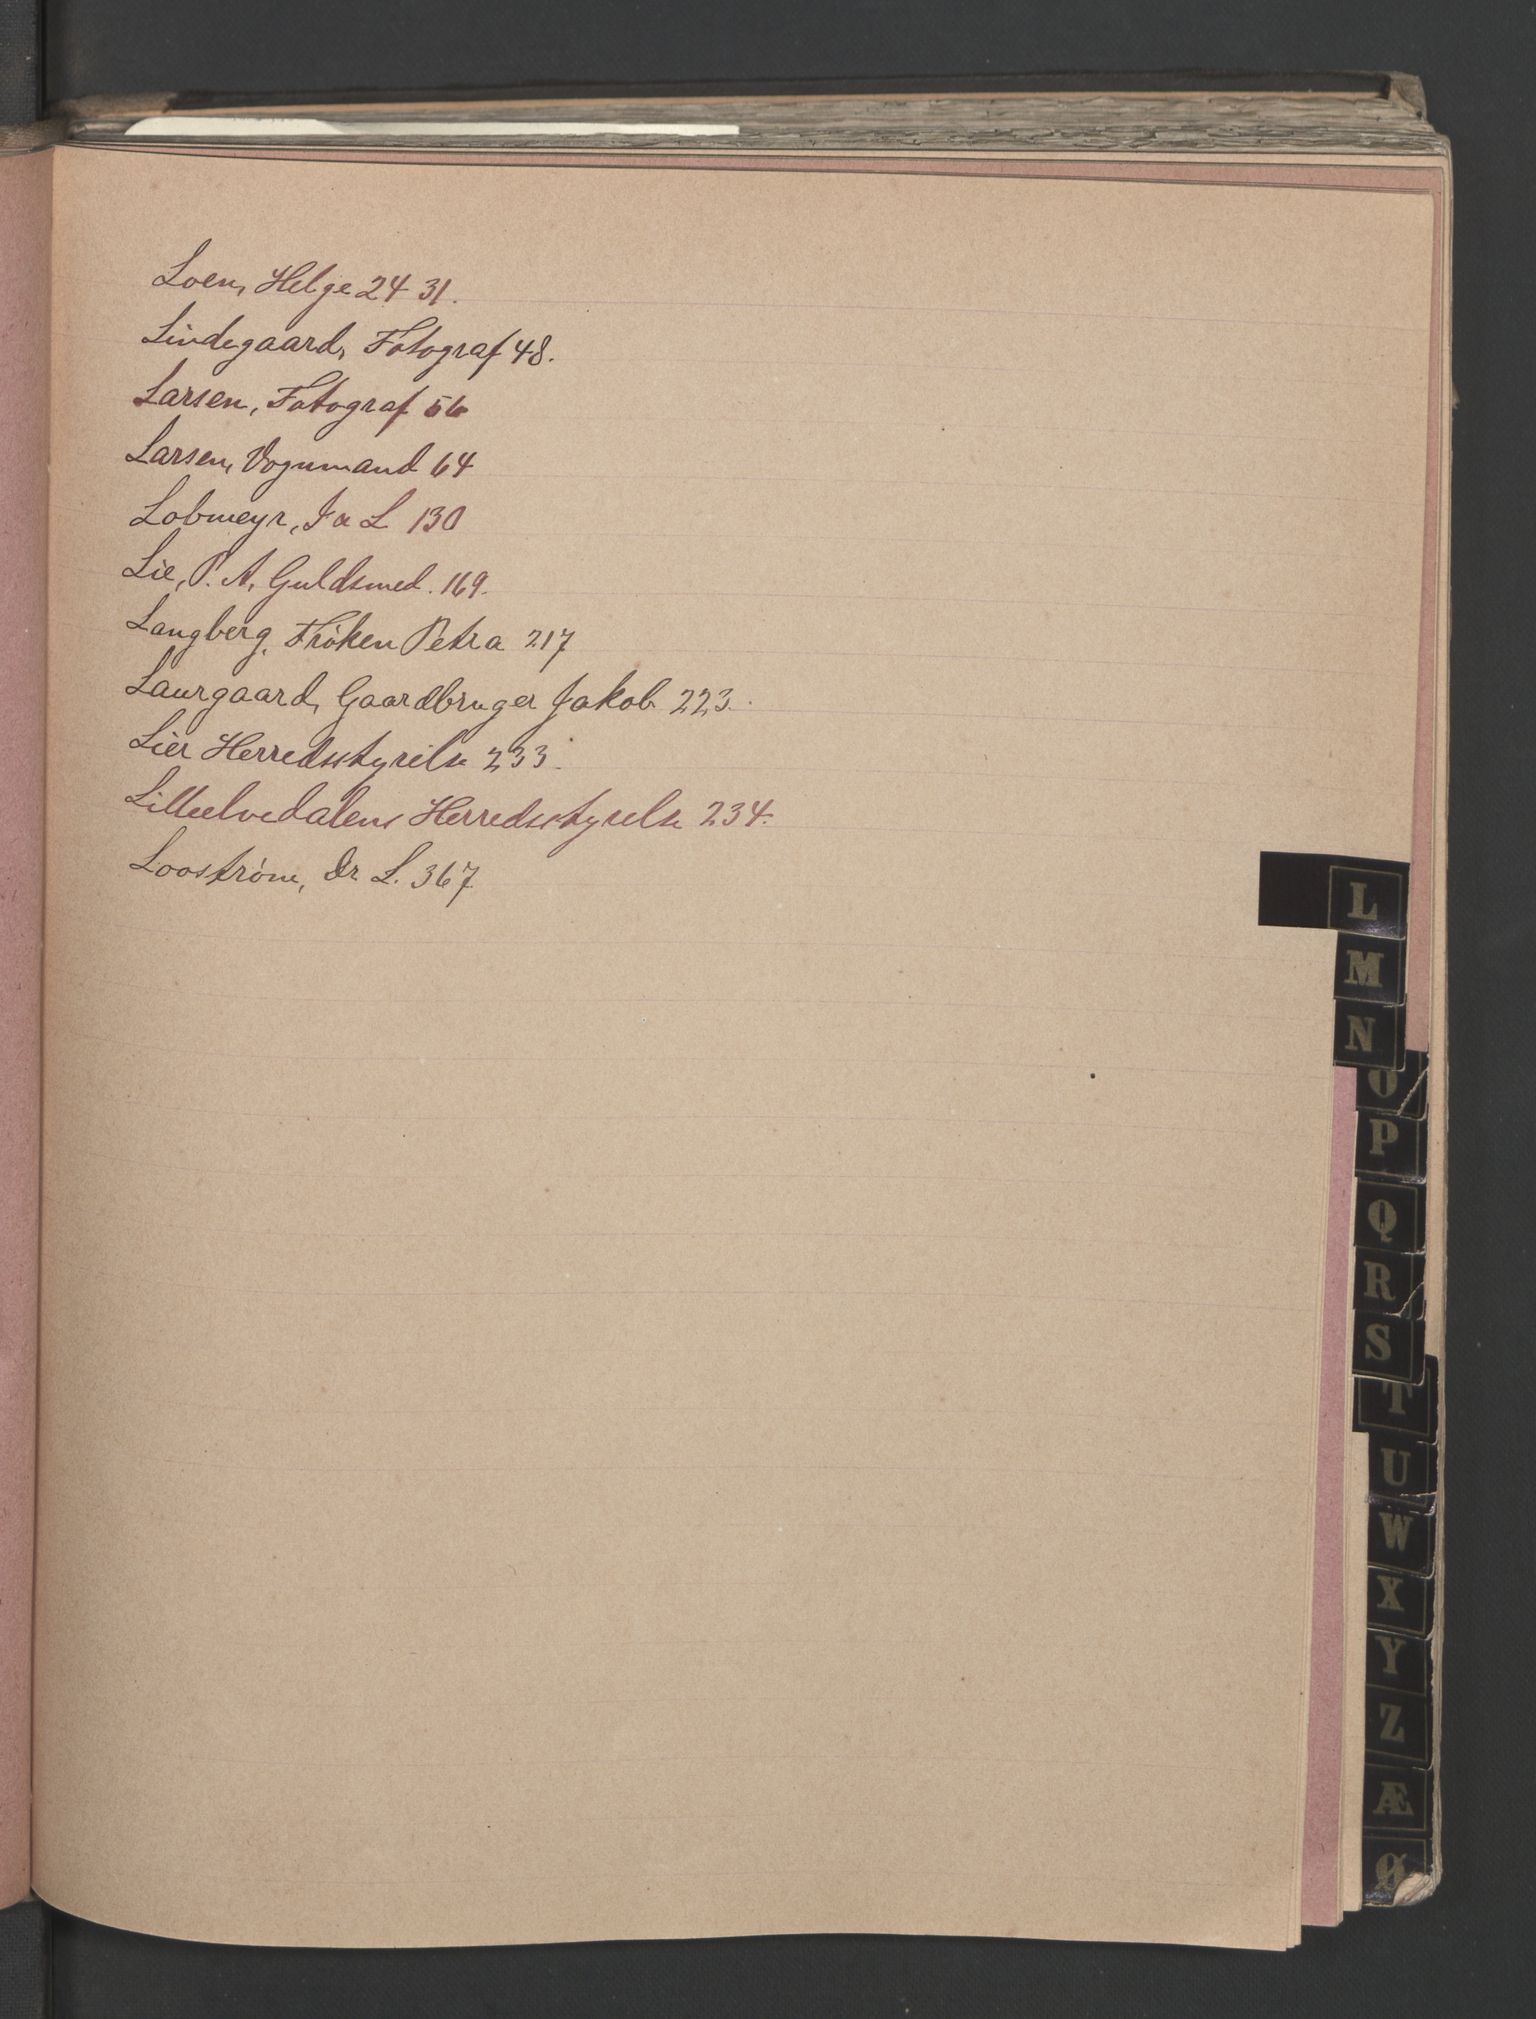 Loen, Helge 24 31.
Lindegaard, Fotograf 48.
Larsen, Fotograf 56
Larsen, Vognmand 64
Lobmeyr, J & L 130
Lie, P. A, Guldsmed. 169.
Langberg, Frøken Petra 217
Laurgaard, Gaardbruger Jakob 223.
Lier Herredsstyrelse 233.
Lilleelvedalens Herredsstyrelse 234.
Looström, Dr L. 367
L
M
N
O
P
Q
R
S
T
U
W
X
Y
Z
Æ
Ø